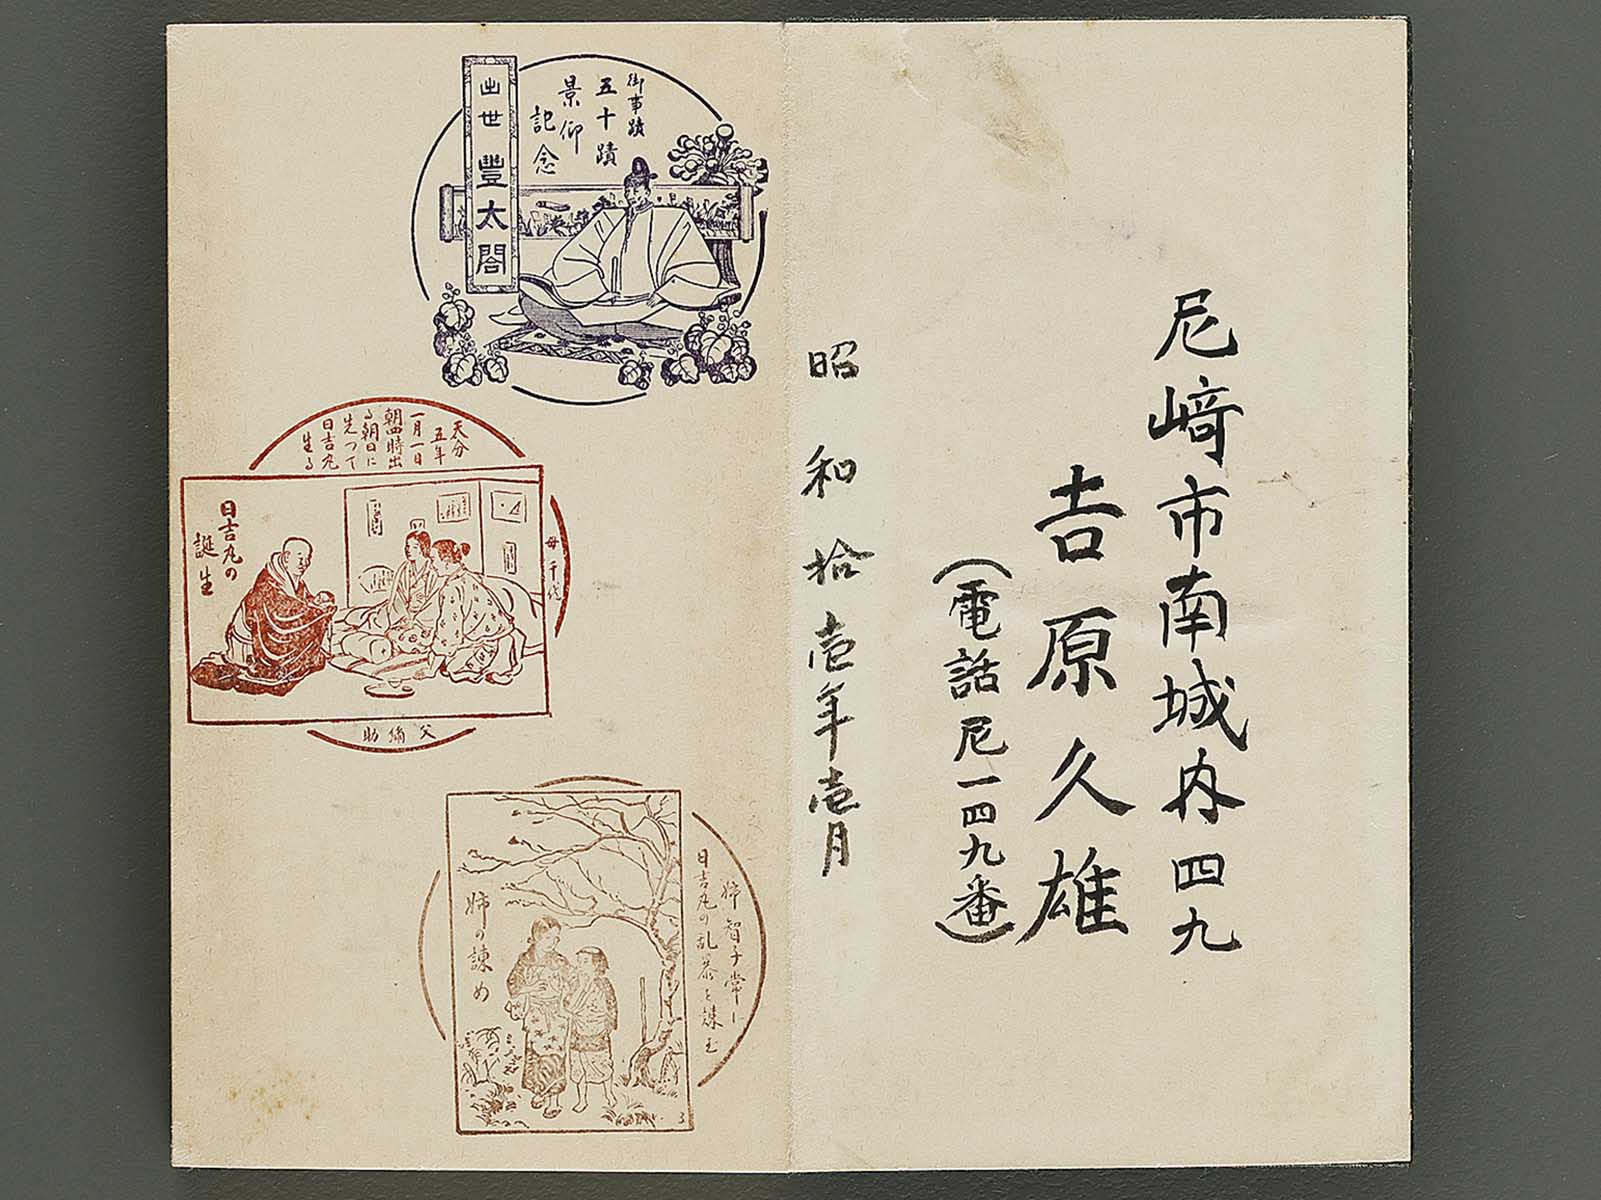 尼﨑市南城内四九
吉原久雄
(電話尼一四九番)
昭和拾壱年壱月
御事蹟
五十蹟
景仰
記念
出世豊太閤
天分
五年
一月一日
朝四時出
る朝日に
先つて
日吉丸
生る
日吉丸の
誕生
母千代
父彌助
姉智子常に
日吉丸の乱暴を諌む
姉の諌め
3